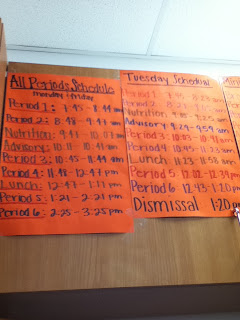 All Periods Schedule
monday - friday
Period 1: 7:45 - 8:44 am
Period 2: 8:48 - 9:47 am
Nutrition: 9:47 - 10:07 am
Advisory: 10:11 - 10:41 am
Period 3: 10:45 - 11:44 am
Period 4: 11:48 - 12:47 pm
Lunch: 12:47 - 1:17 pm
Period 5: 1:21 - 2:21 pm
Period 6: 2:25 - 3:25 pm
Tuesday Schedule
Period 1
Period 2
Nutrition
Advisory 9:29 - 9:59 am
Period 3: 10:03 - 10:41
Period 4 10:45 - 11:23 am
Lunch 11:23 - 11:58 am
Period 5 12:02 - 12:39 pm
Period 6 12:43 - 1:20 pm
Dismissal 1:20 p